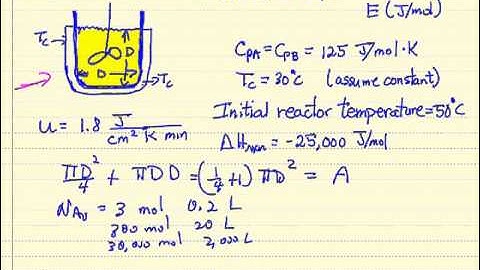 E (J/mol)
Tc
D
D
Tc
CPA = CPB = 125 J/mol·K
Tc = 30°C (assume constant)
Initial reactor temperature = 50°C
U = 1.8 J/cm² K min
ΔHrxn = -25,000 J/mol
πD²/4 + πDD = (1/4 + 1) πD² = A
NA0 = 3 mol 0.2 L
300 mol 20 L
30,000 mol 2,000 L